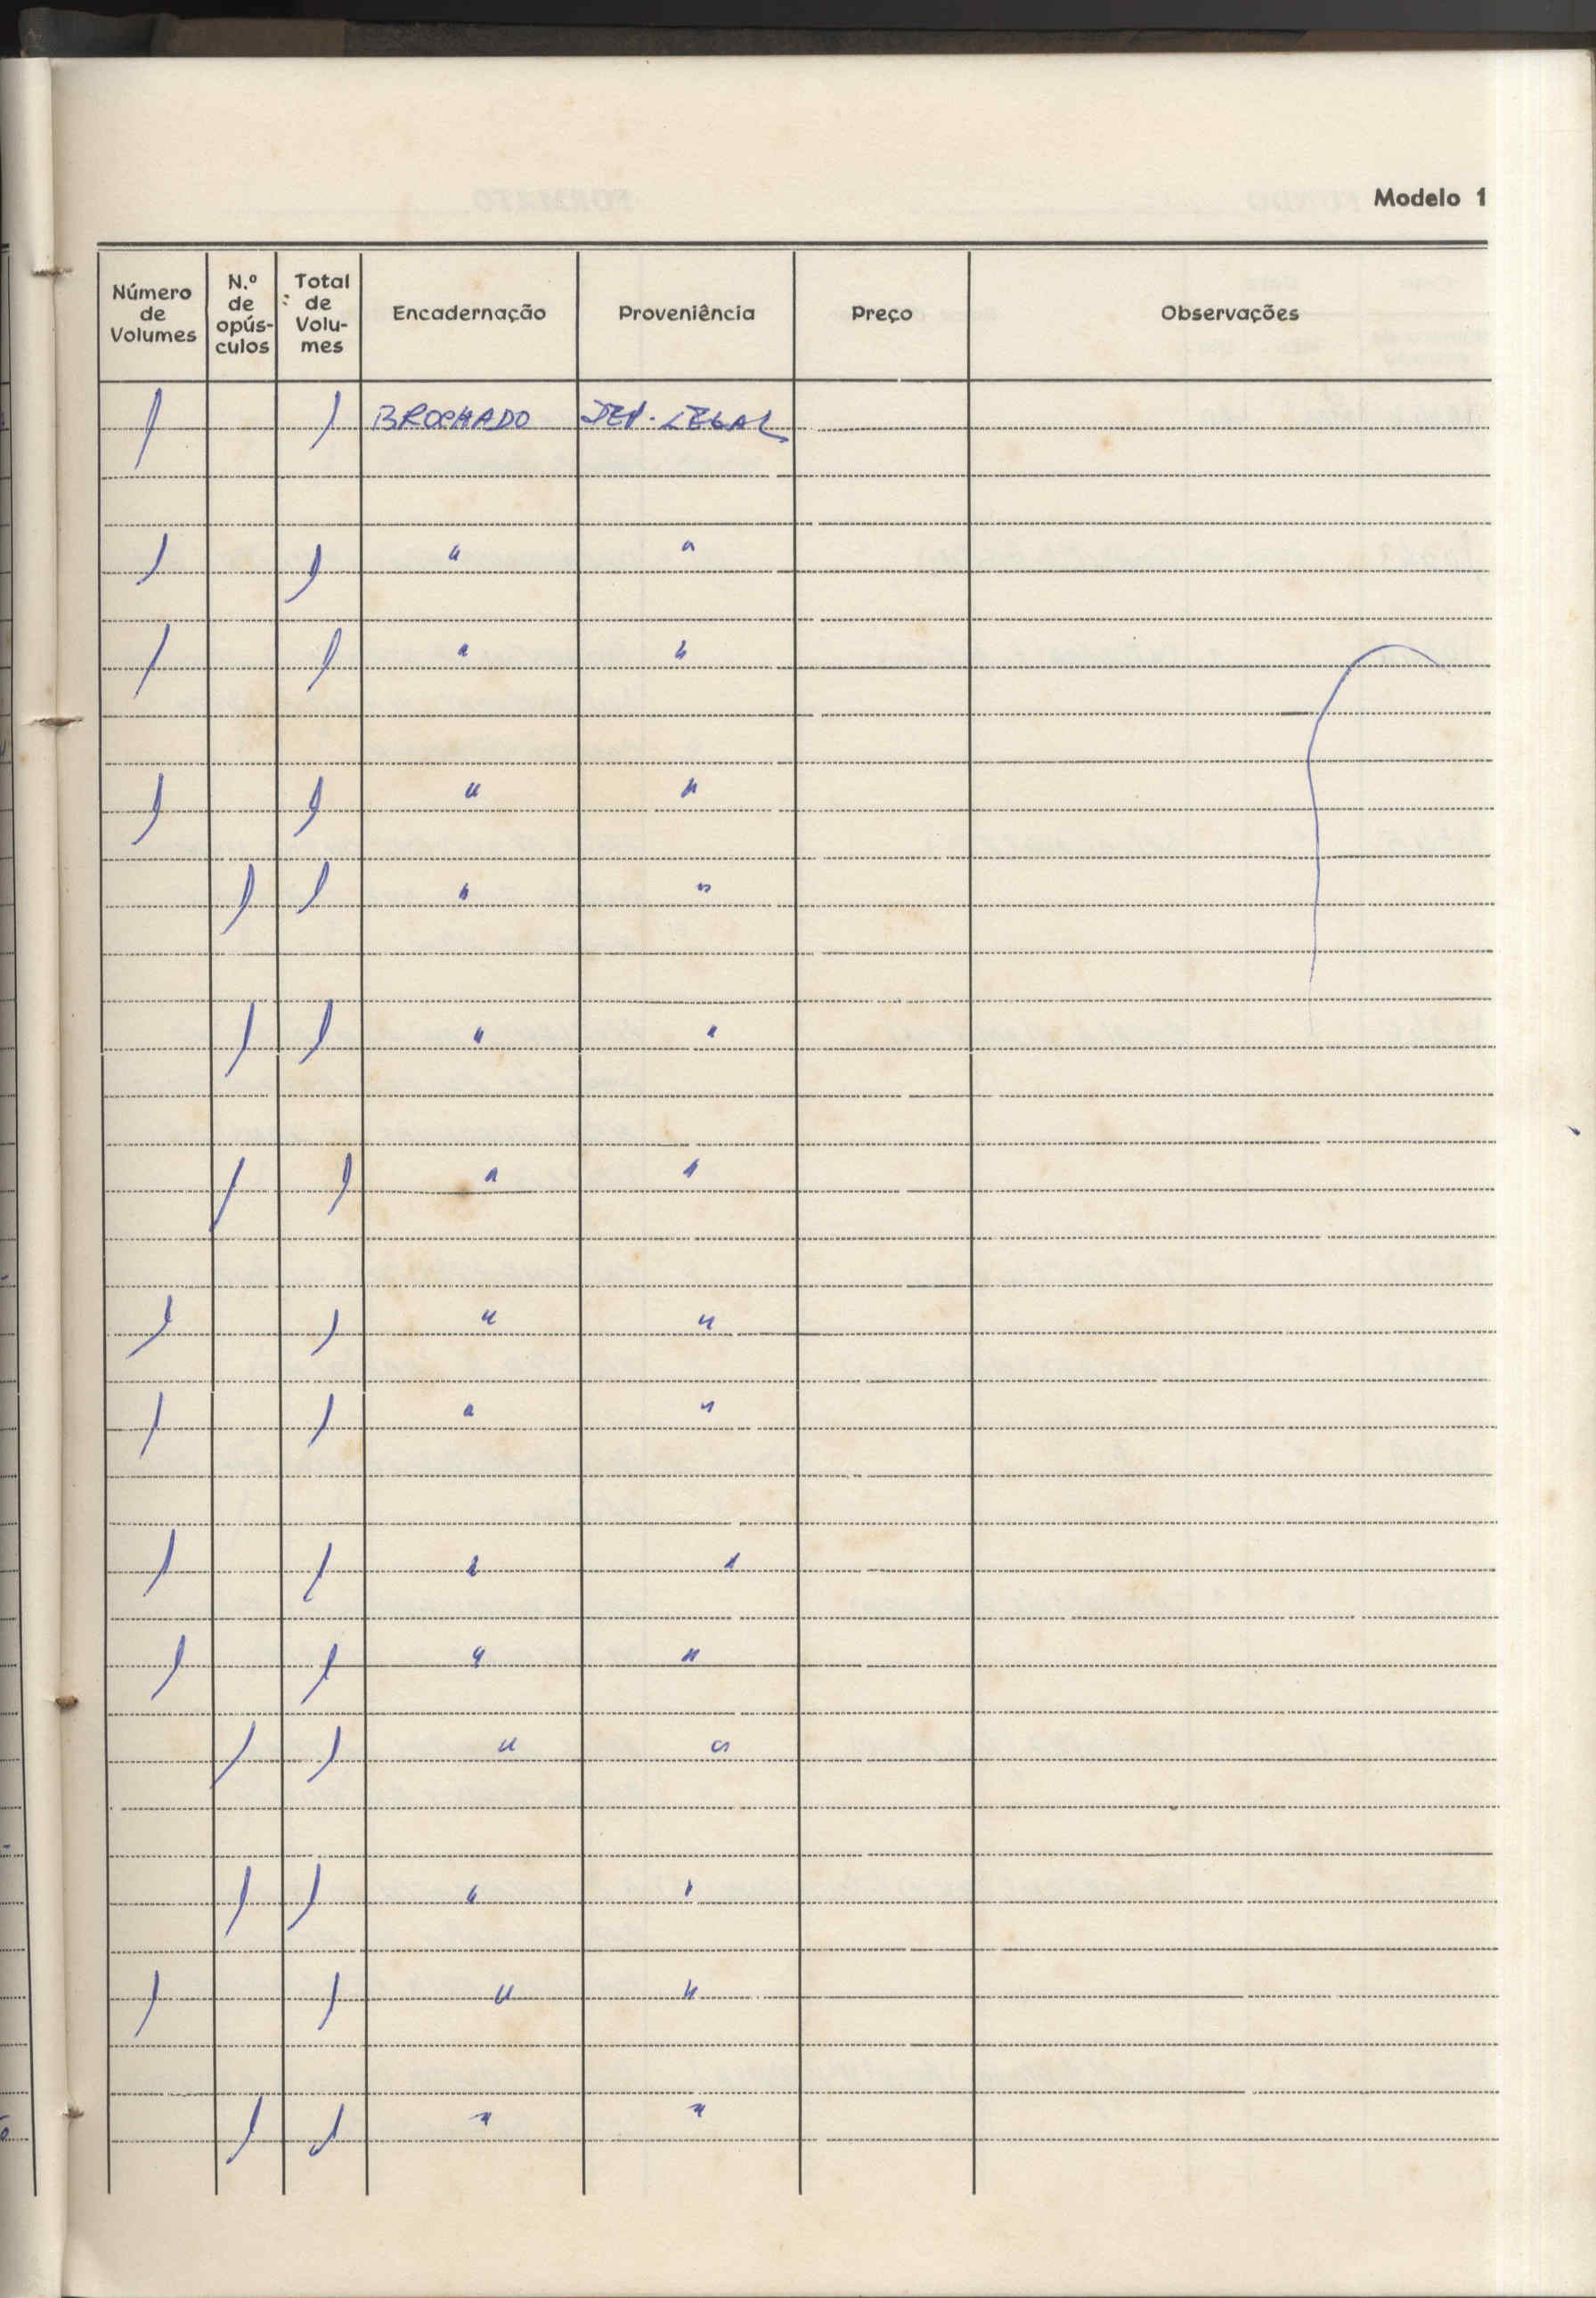 Modelo 1
Número de Volumes N.º de opús-culos Total de Volu-mes Encadernação Proveniência Preço Observações
1 1 BROCHADO DEP. LEGAL
1 1 " "
1 1 " "
1 1 " "
1 1 " "
1 1 " "
1 1 " "
1 1 " "
1 1 " "
1 1 " "
1 1 " "
1 1 " "
1 1 " "
1 1 " "
1 1 " "